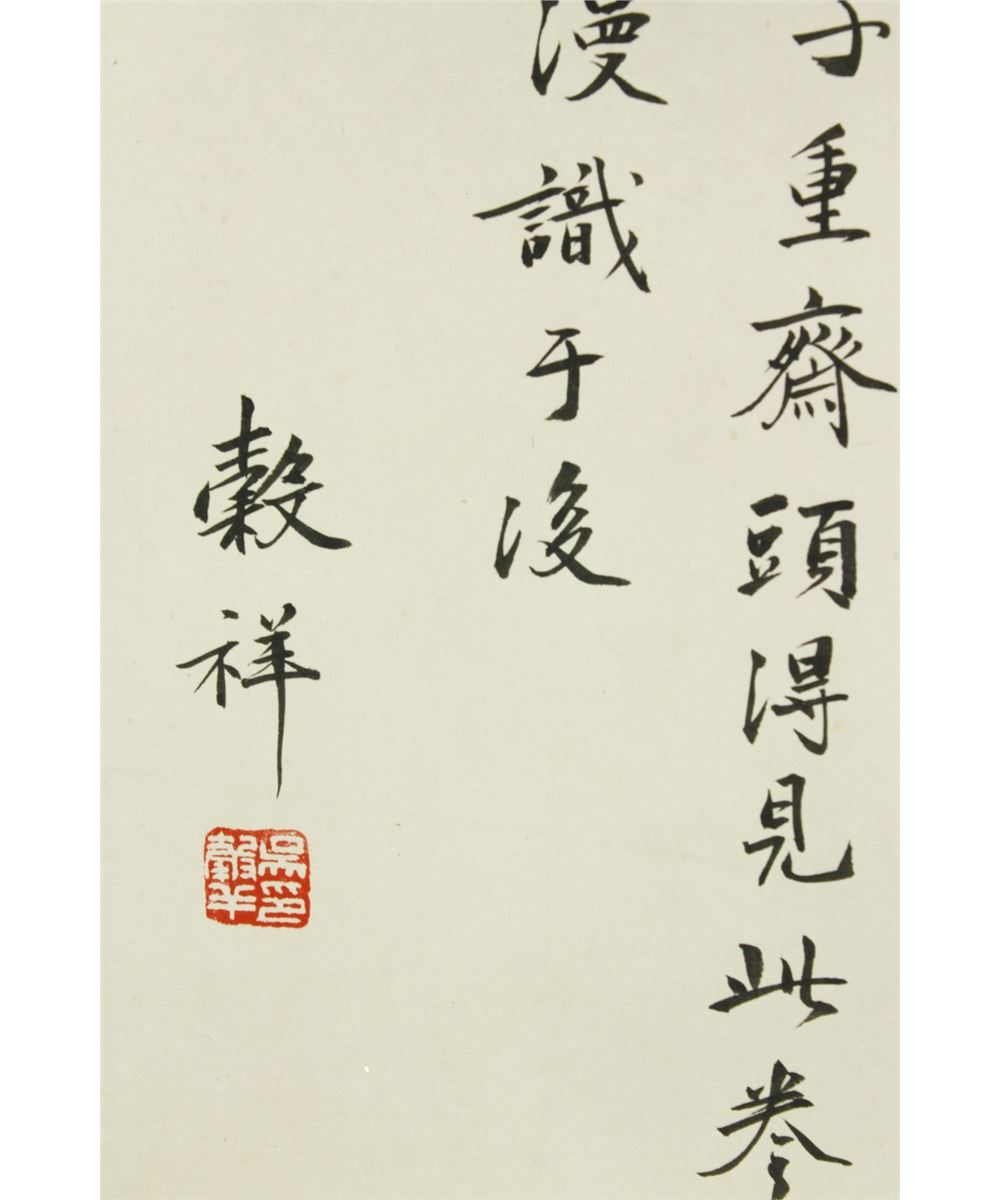 子重齋頭得見此卷
漫識于後
穀祥
吳印穀羊